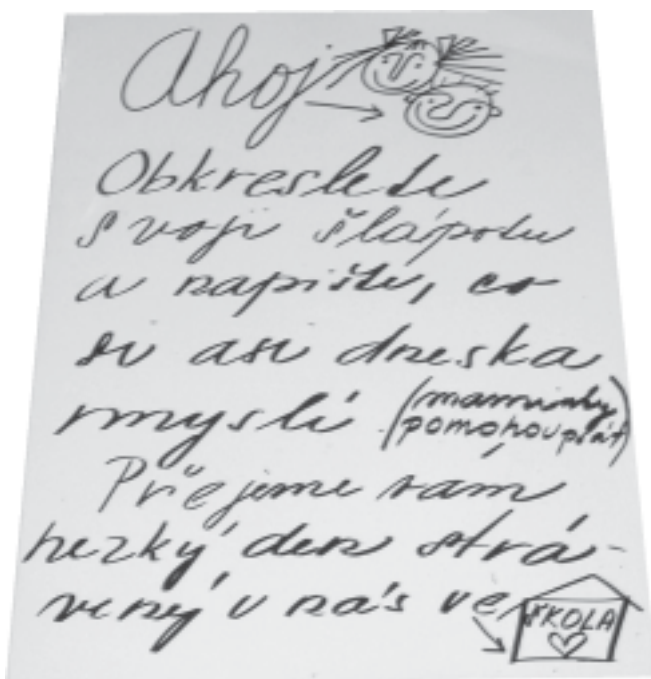 Ahoj
Obkreslete
svoji šlápotu
a napište, co
si asi dneska
myslí (maminky
pomohou psát)
Přejeme vam
hezký den strá-
vený u nás ve
ŠKOLA